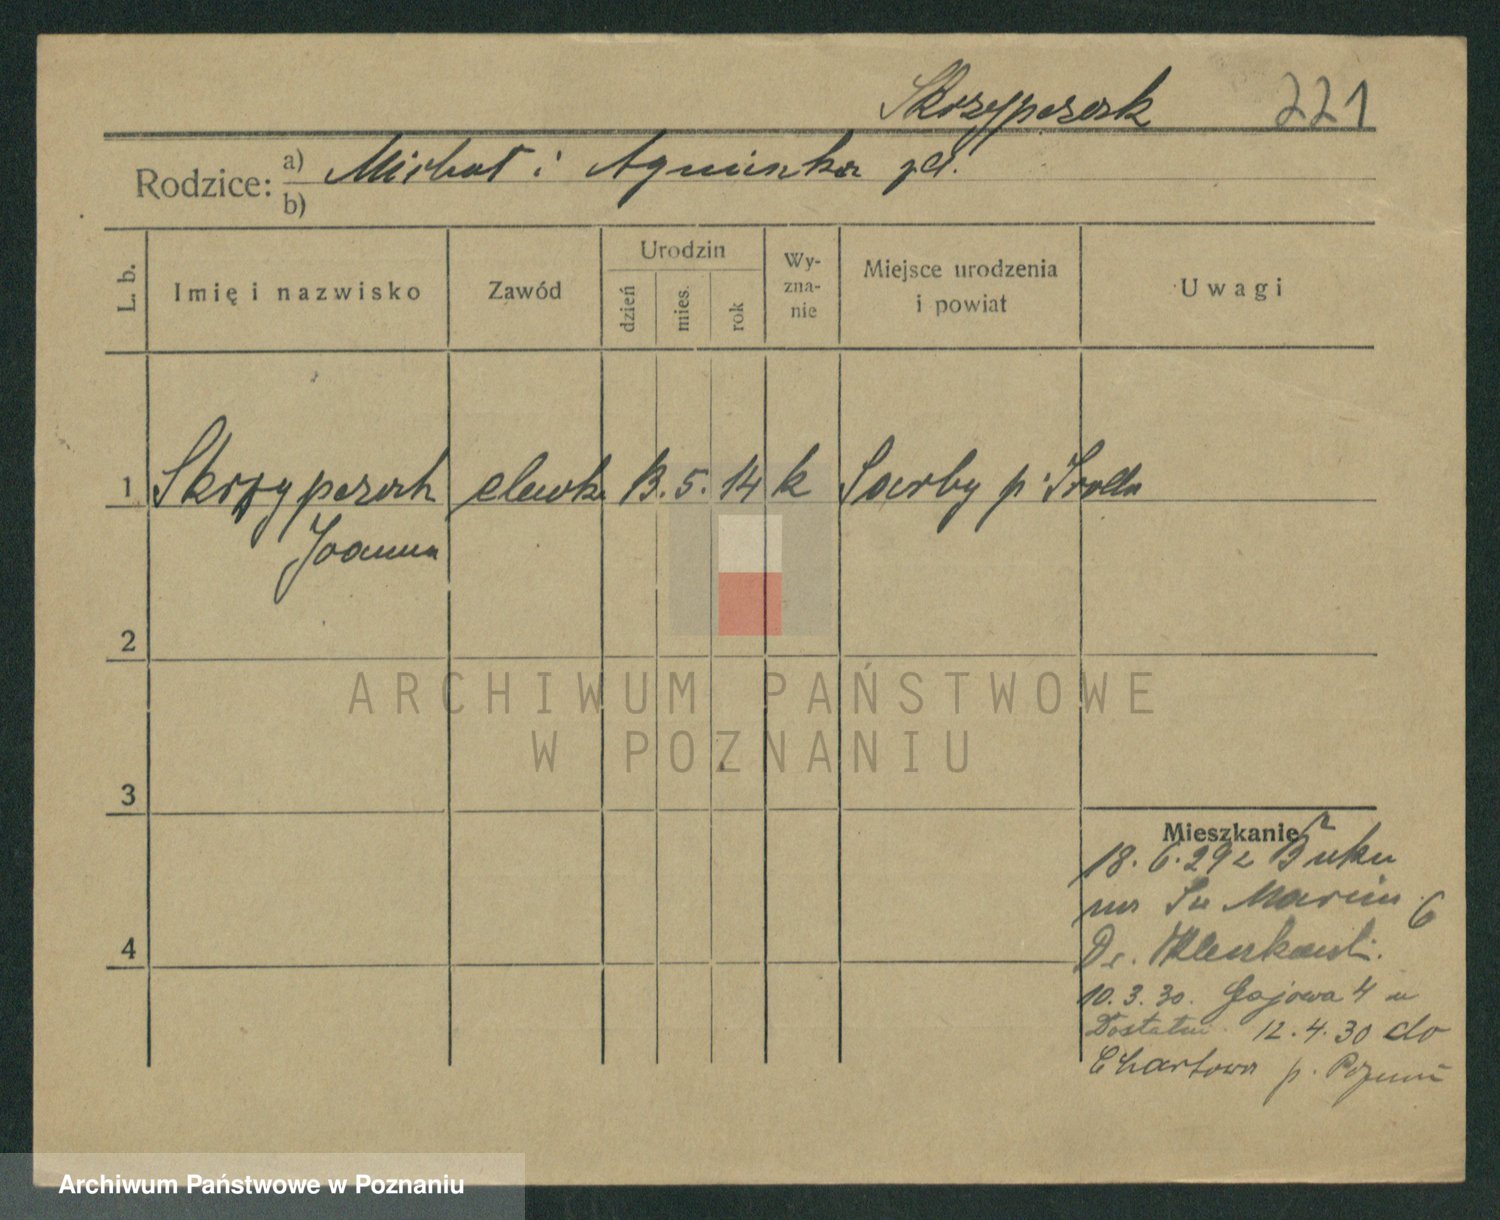 Skrzypczak 221
Rodzice: a) Michał i Agnieszka
b)
L. b.
Imię i nazwisko
Zawód
Urodzin
dzień
mies.
rok
Wy-
zna-
nie
Miejsce urodzenia
i powiat
Uwagi
1 Skrzypczak 13. 5. 14 k p. Środa
Joanna
2
ARCHIWUM PAŃSTWOWE
W POZNANIU
3
Mieszkanie
18. 6. 29 z Buku
na Św Marcin 6
Dr.
10. 3. 30. Gajowa 4 u
12. 4. 30 do
Chartowa p. Poznań
4
Archiwum Państwowe w Poznaniu